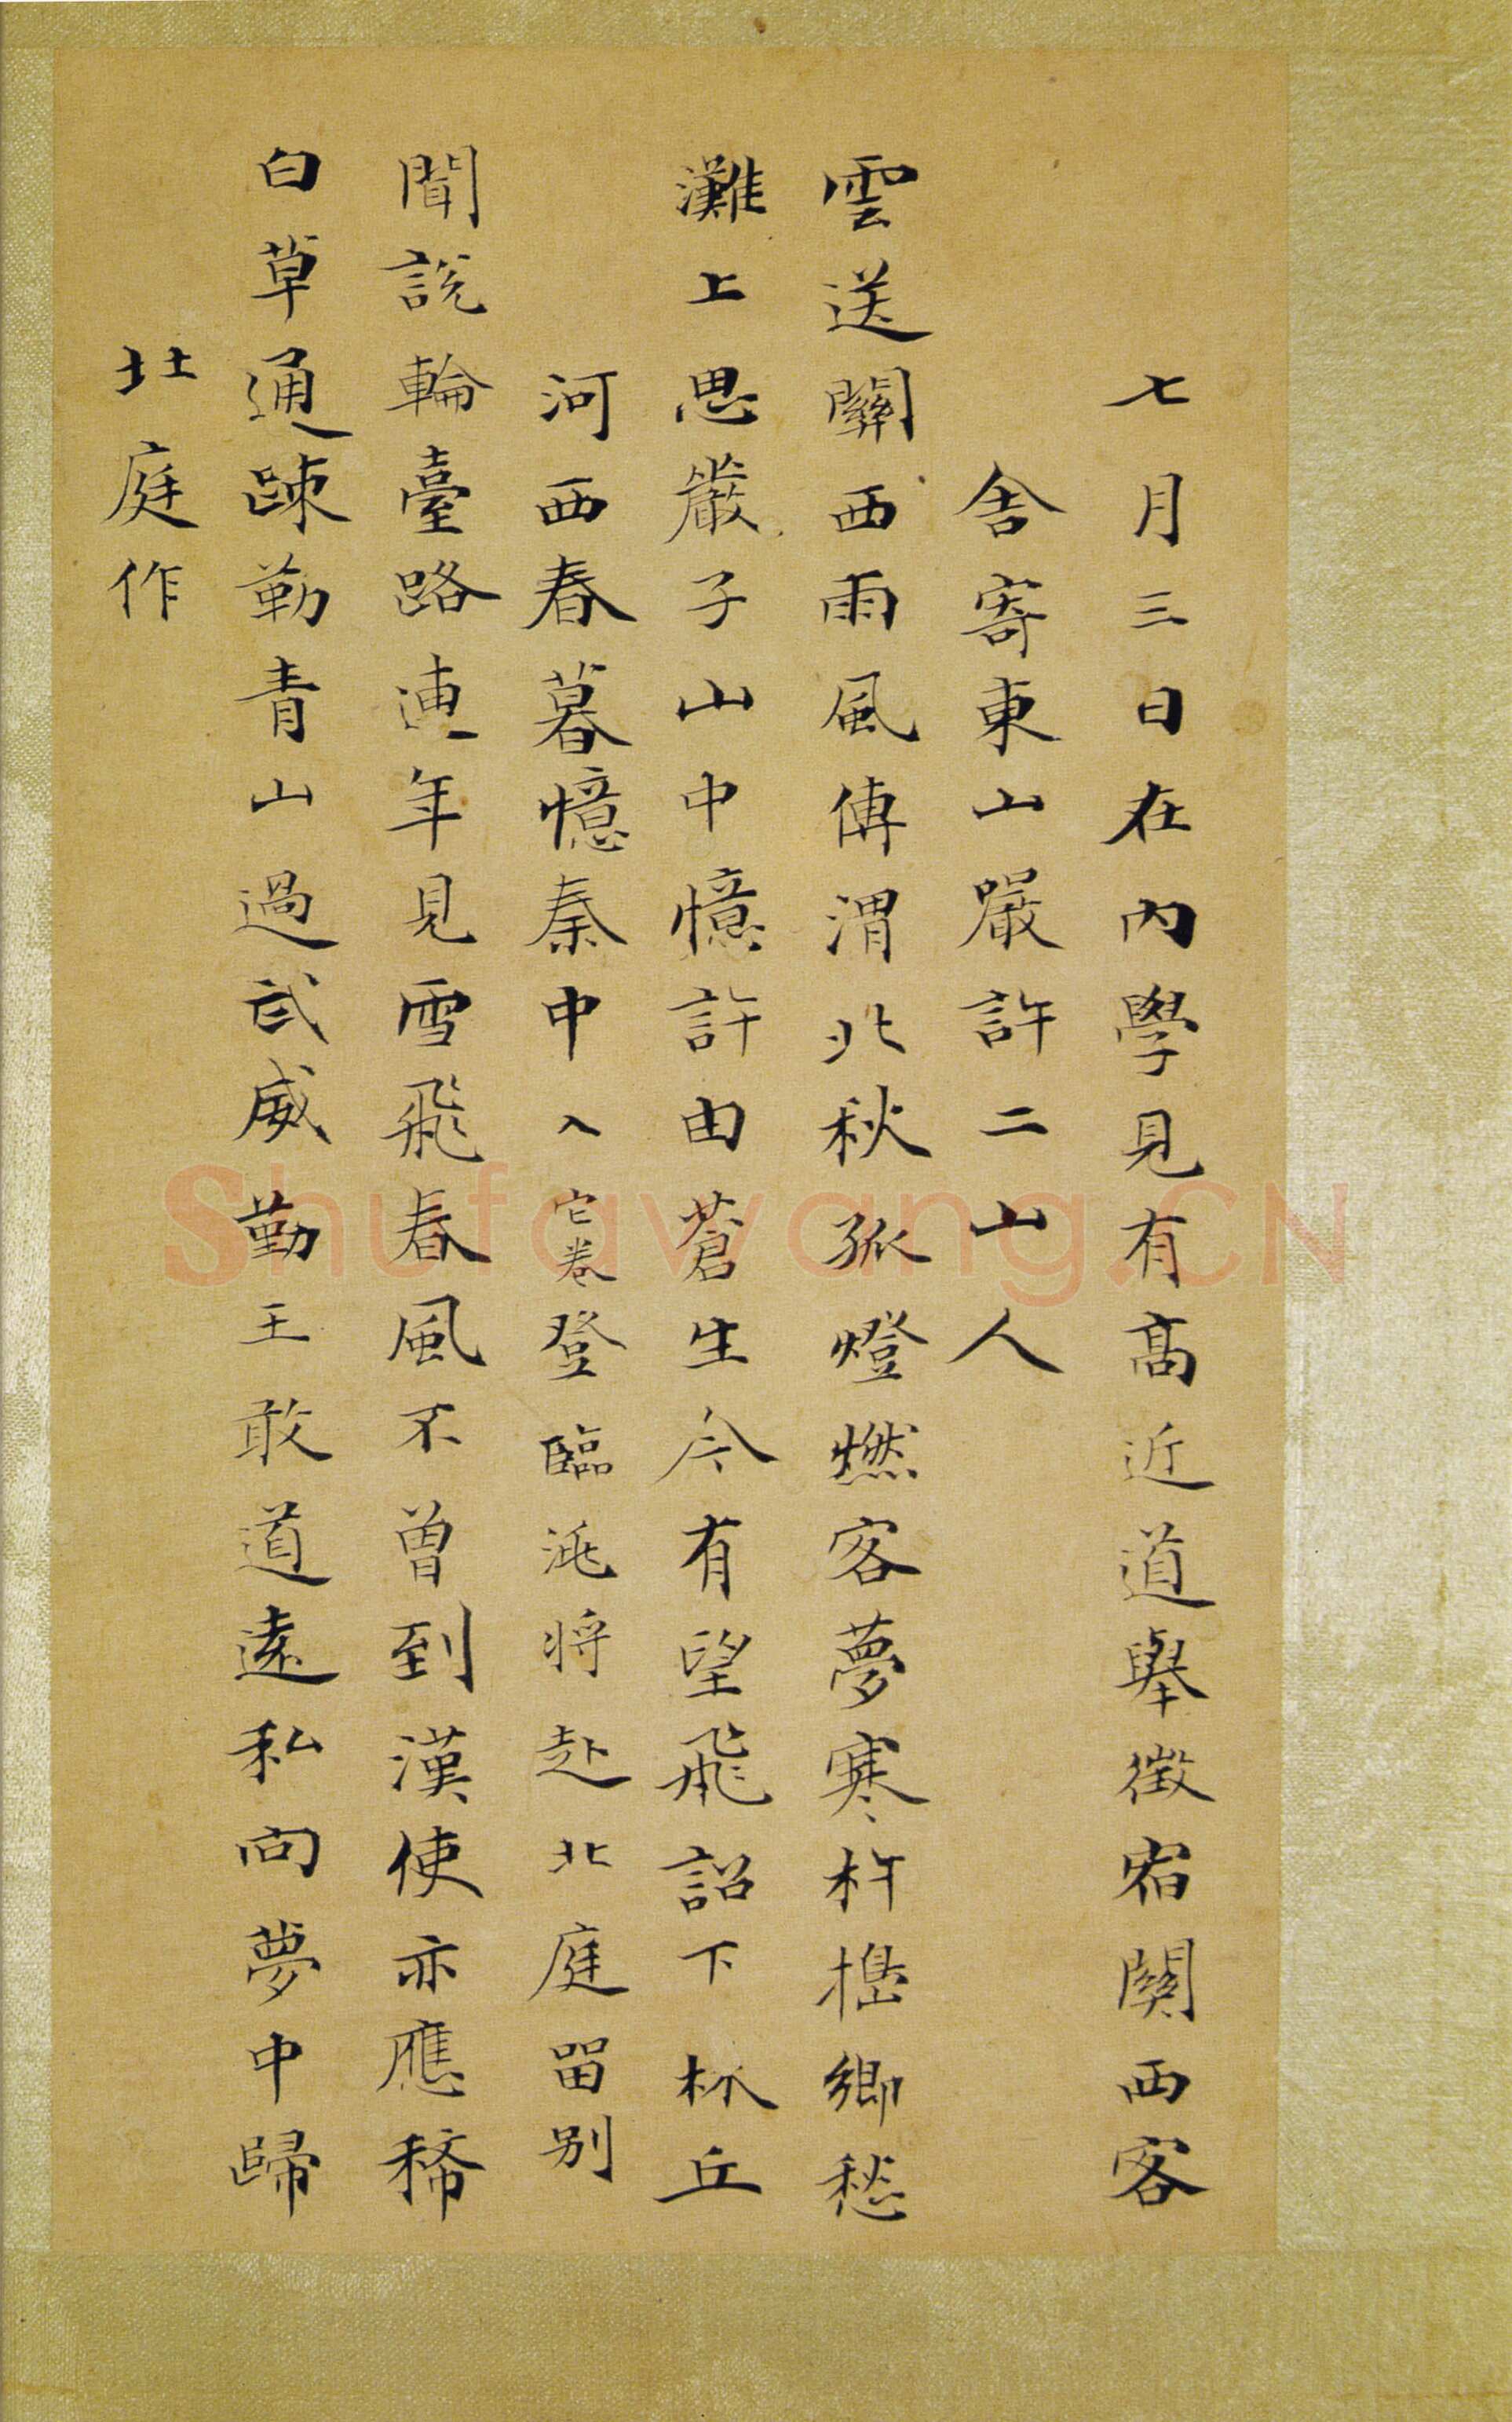 七月三日在內學見有高近道舉徵宿關西客
舍寄東山嚴許二山人
雲送關西雨風傳渭北秋孤燈燃客夢寒杵擣鄉愁
灘上思嚴子山中憶許由蒼生今有望飛詔下林丘
河西春暮憶秦中入它卷登臨洮將赴北庭留別
聞說輪臺路連年見雪飛春風不曾到漢使亦應稀
白草通疎勒青山過武威勤王敢道遠私向夢中歸
北庭作
Shufawang.CN